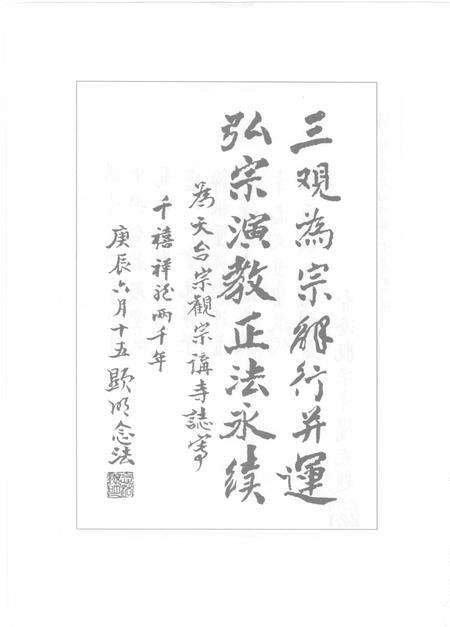 三观為宗解行并運
弘宗演教正法永续
為天台宗觀宗講寺誌寫
千禧祥龍两千年
庚辰六月十五顯明念法